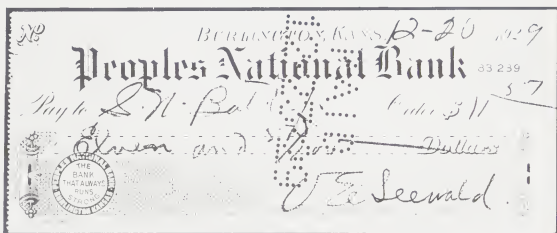 No
BURLINGTON, KANS. 12-20 1929
Peoples National Bank 83 239
Pay to S. N. Order $11
Eleven and Dollars
THE BANK THAT ALWAYS RUNS STRONG
V E Seewald.